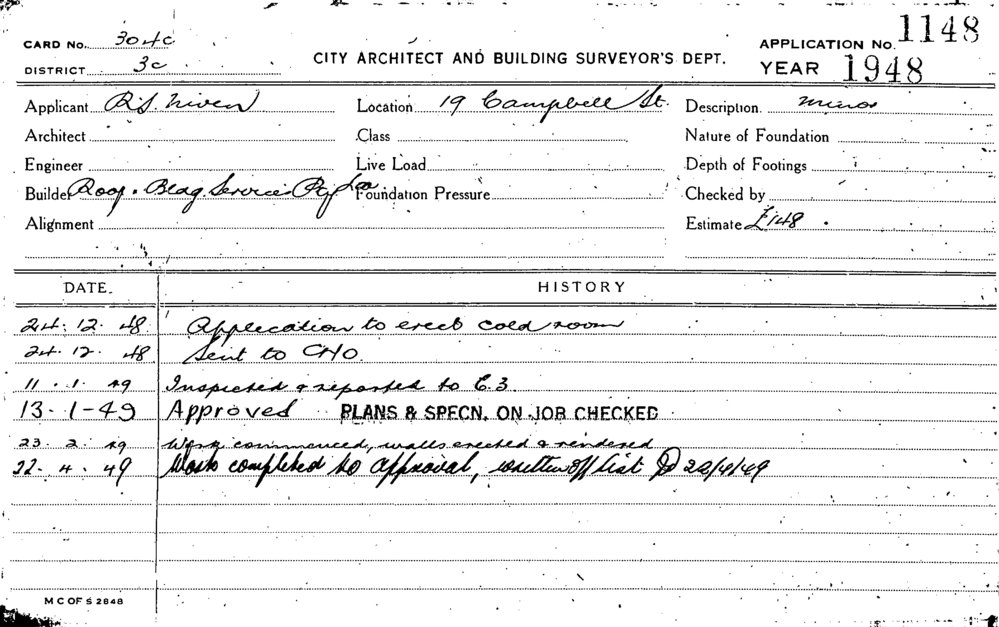 CARD No. 304C
DISTRICT 3c
CITY ARCHITECT AND BUILDING SURVEYOR'S DEPT.
APPLICATION No. 1148
YEAR 1948
Applicant R.S. Niven Location 19 Campbell St. Description Minor
Architect Class Nature of Foundation
Engineer Live Load Depth of Footings
Builder Bldg. Service Pty Foundation Pressure Checked by
Alignment Estimate £148
DATE. HISTORY
24.12.48 Application to erect cold room
24.12.48 Sent to CHO.
11.1.49 Inspected & reported to C.3.
13.1-49 Approved PLANS & SPECN. ON JOB CHECKED
23.2.49 Work commenced, walls erected & rendered
22.4.49 Work completed to approval, written off list 22/4/49
M C OF S 2848